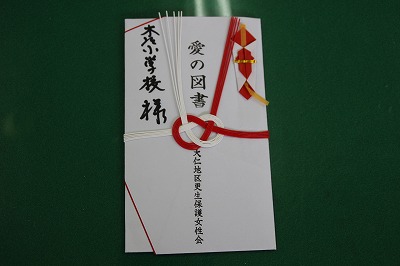 愛の図書
大仁地区更生保護女性会
小学校 様